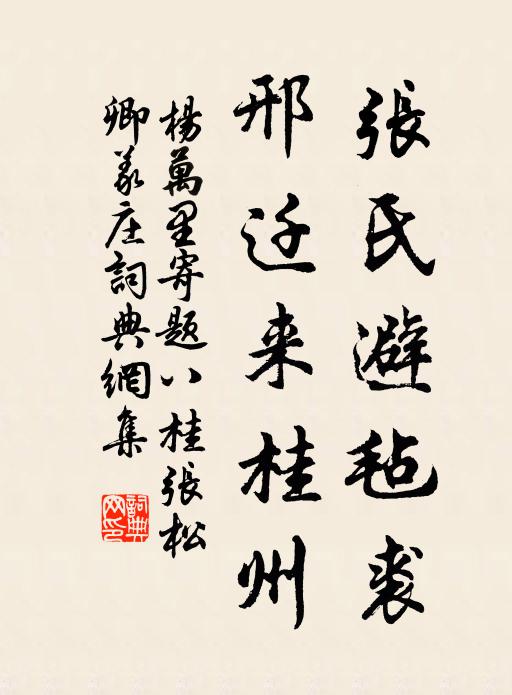 張氏避毡裘
邢迁来桂州
楊萬里寄题八桂張松
卿義庄詞典網集
詞典網印